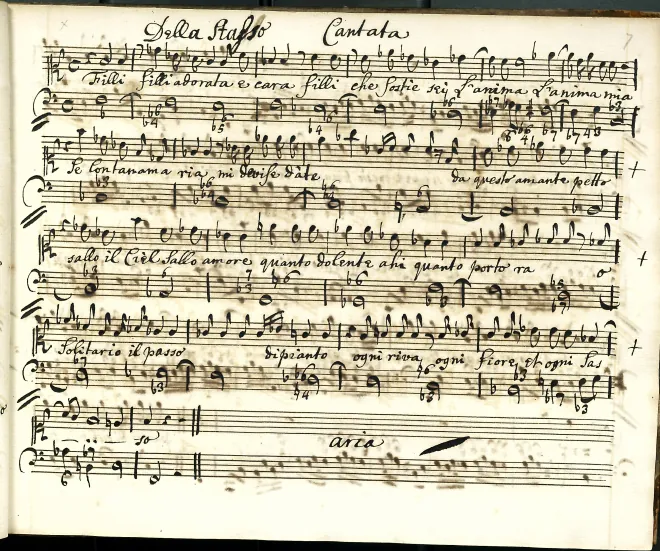 Della Stesso Cantata
7
Filli filli adorata e cara filli che foste sei L'anima L'anima mia
Se lontanama ria mi devise date da questo amante petto
sallo il Ciel Sallo amore quanto dolente ahi quanto porto ra o
Solitario il passo di pianto ogni riva ogni fiore et ogni Sas
so
aria